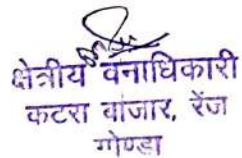 क्षेत्रीय वनाधिकारी
कटरा बाजार, रेंज
गोण्डा